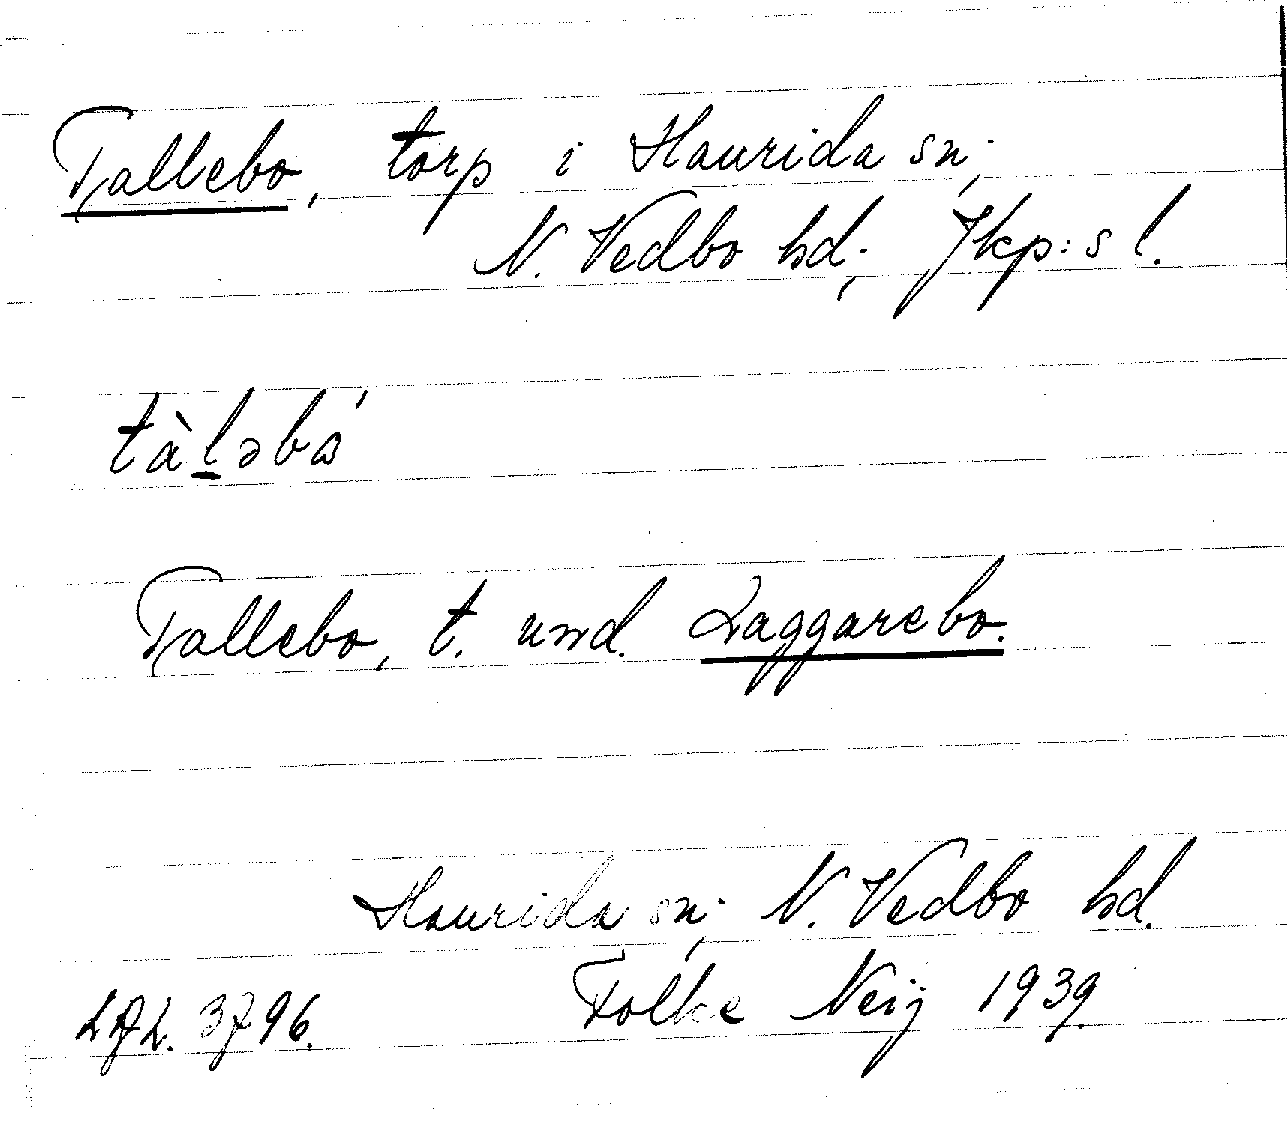 Tallebo, torp i Haurida sn;
N. Vedbo hd; Jkp:s l.
tàl̲əbá
Tallebo, t. und. Laggarebo.
Haurida sn; N. Vedbo hd.
Folke Neij 1939.
3796.